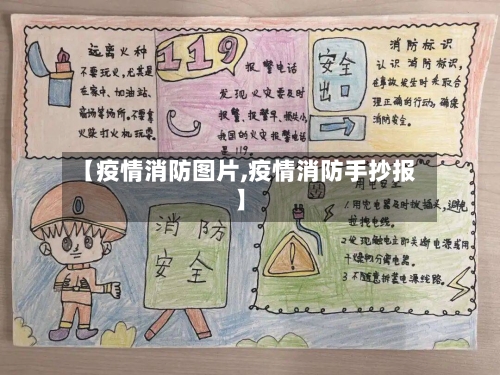 远离火种
不要玩火,尤其是
在家中、加油站、
商场等场所。不要拿
火柴打火机玩耍
119
报警电话
发现火灾要及时
报警,报警早,损失小,
我国的火灾报警电话
是119
安全
出口
消防标识
认识消防标识,
在事故发生时采取合
理正确的行动,确保
消防安全。
【疫情消防图片,疫情消防手抄报
】
消防
安全
用电安全
1.用完电器及时拔插头,避免
拉拽电线。
2.发现触电立即关断电源或用
干燥物分离电器。
3.不随意拆装电源线路。